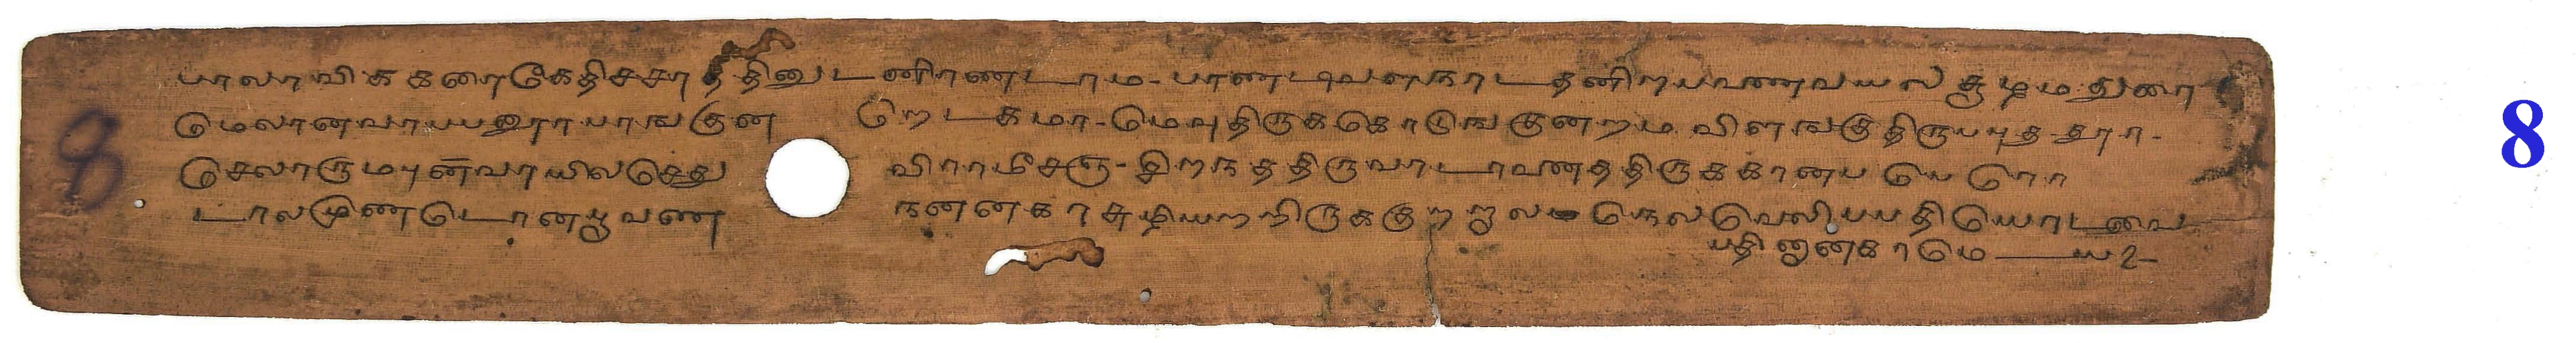 பாலாவிககரைகேதிசசரததினுடணிரணடாம-பாணடிவளநாடதனிறபவணவயல சூழமதுரை
மெலானவாபபனூராபாஙகுன றெடகமா-மெவுதிருககொடுஙகுனறம விளஙகுதிருபபுததூரா-
செலாருமபுனவாயிலசெது விராமீசஞ-இறநததிருவாடாவணததிருககானபபெரொ
டாலமுணடொனபூவண நனனகரசுழியறறிருககுறறாலம நெலவெலிபபதியொடவை
பதினானகாமே ——ய௨
8
8